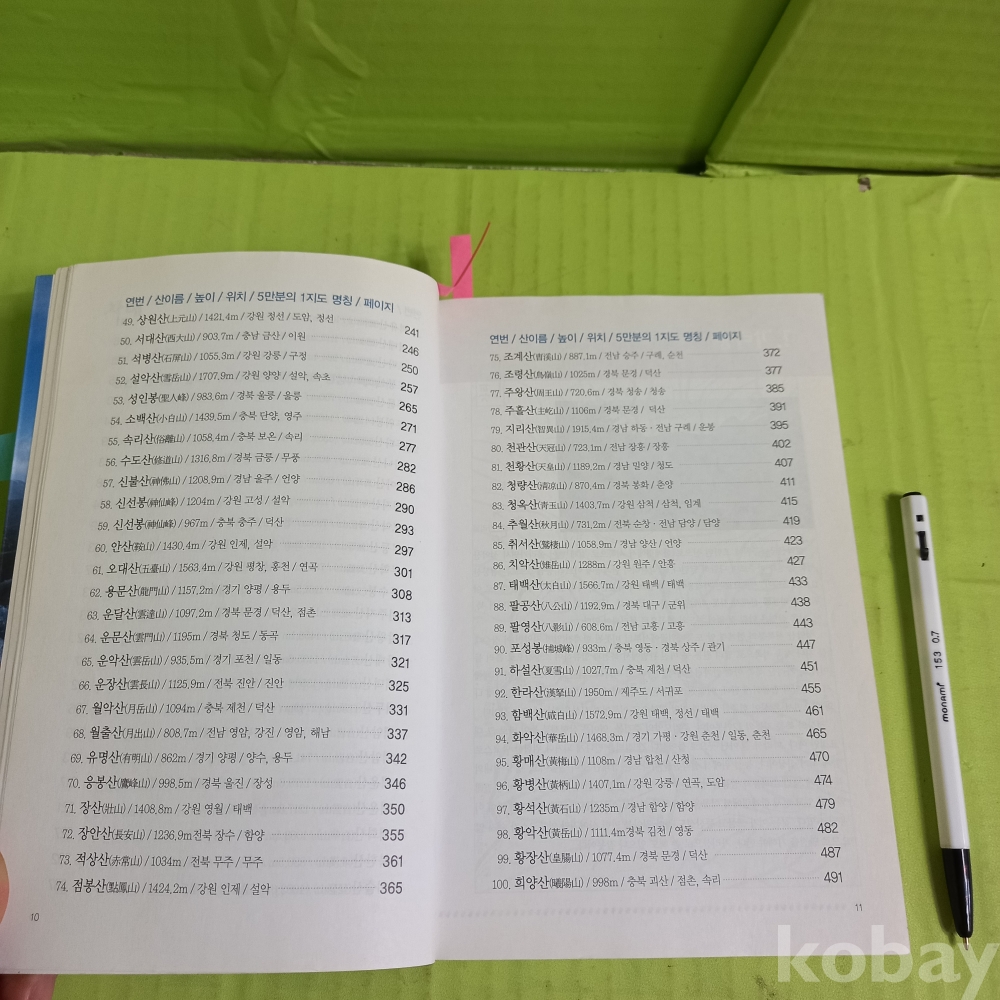 연번 / 산이름 / 높이 / 위치 / 5만분의 1지도 명칭 / 페이지
49. 상원산(上元山) / 1421.4m / 강원 정선 / 도암, 정선 241
50. 서대산(西大山) / 903.7m / 충남 금산 / 이원 246
51. 석병산(石屛山) / 1055.3m / 강원 강릉 / 구정 250
52. 설악산(雪岳山) / 1707.9m / 강원 양양 / 설악, 속초 257
53. 성인봉(聖人峰) / 983.6m / 경북 울릉 / 울릉 265
54. 소백산(小白山) / 1439.5m / 충북 단양, 영주 271
55. 속리산(俗離山) / 1058.4m / 충북 보은 / 속리 277
56. 수도산(修道山) / 1316.8m / 경북 금릉 / 무풍 282
57. 신불산(神佛山) / 1208.9m / 경남 울주 / 언양 286
58. 신선봉(神仙峰) / 1204m / 강원 고성 / 설악 290
59. 신선봉(神仙峰) / 967m / 충북 충주 / 덕산 293
60. 안산(鞍山) / 1430.4m / 강원 인제, 설악 297
61. 오대산(五臺山) / 1563.4m / 강원 평창, 홍천 / 연곡 301
62. 용문산(龍門山) / 1157.2m / 경기 양평 / 용두 308
63. 운달산(雲達山) / 1097.2m / 경북 문경 / 덕산, 점촌 313
64. 운문산(雲門山) / 1195m / 경북 청도 / 동곡 317
65. 운악산(雲岳山) / 935.5m / 경기 포천 / 일동 321
66. 운장산(雲長山) / 1125.9m / 전북 진안 / 진안 325
67. 월악산(月岳山) / 1094m / 충북 제천 / 덕산 331
68. 월출산(月出山) / 808.7m / 전남 영암, 강진 / 영암, 해남 337
69. 유명산(有明山) / 862m / 경기 양평 / 양수, 용두 342
70. 응봉산(鷹峰山) / 998.5m / 경북 울진 / 장성 346
71. 장산(壯山) / 1408.8m / 강원 영월 / 태백 350
72. 장안산(長安山) / 1236.9m전북 장수 / 함양 355
73. 적상산(赤常山) / 1034m / 전북 무주 / 무주 361
74. 점봉산(點鳳山) / 1424.2m / 강원 인제 / 설악 365
10
연번 / 산이름 / 높이 / 위치 / 5만분의 1지도 명칭 / 페이지
75. 조계산(曹溪山) / 887.1m / 전남 승주 / 구례, 순천 372
76. 조령산(鳥嶺山) / 1025m / 경북 문경 / 덕산 377
77. 주왕산(周王山) / 720.6m / 경북 청송 / 청송 385
78. 주흘산(主屹山) / 1106m / 경북 문경 / 덕산 391
79. 지리산(智異山) / 1915.4m / 경남 하동 · 전남 구례 / 운봉 395
80. 천관산(天冠山) / 723.1m / 전남 장흥 / 장흥 402
81. 천황산(天皇山) / 1189.2m / 경남 밀양 / 청도 407
82. 청량산(淸凉山) / 870.4m / 경북 봉화 / 춘양 411
83. 청옥산(靑玉山) / 1403.7m / 강원 삼척 / 삼척, 임계 415
84. 추월산(秋月山) / 731.2m / 전북 순창 · 전남 담양 / 담양 419
85. 취서산(鷲棲山) / 1058.9m / 경남 양산 / 언양 423
86. 치악산(雉岳山) / 1288m / 강원 원주 / 안흥 427
87. 태백산(太白山) / 1566.7m / 강원 태백 / 태백 433
88. 팔공산(八公山) / 1192.9m / 경북 대구 / 군위 438
89. 팔영산(八影山) / 608.6m / 전남 고흥 / 고흥 443
90. 포성봉(捕城峰) / 933m / 충북 영동 · 경북 상주 / 관기 447
91. 하설산(夏雪山) / 1027.7m / 충북 제천 / 덕산 451
92. 한라산(漢拏山) / 1950m / 제주도 / 서귀포 455
93. 함백산(咸白山) / 1572.9m / 강원 태백, 정선 / 태백 461
94. 화악산(華岳山) / 1468.3m / 경기 가평 · 강원 춘천 / 일동, 춘천 465
95. 황매산(黃梅山) / 1108m / 경남 합천 / 산청 470
96. 황병산(黃柄山) / 1407.1m / 강원 강릉 / 연곡, 도암 474
97. 황석산(黃石山) / 1235m / 경남 함양 / 함양 479
98. 황악산(黃岳山) / 1111.4m경북 김천 / 영동 482
99. 황장산(皇腸山) / 1077.4m / 경북 문경 / 덕산 487
100. 희양산(曦陽山) / 998m / 충북 괴산 / 점촌, 속리 491
11
monami 153 0.7
kobay